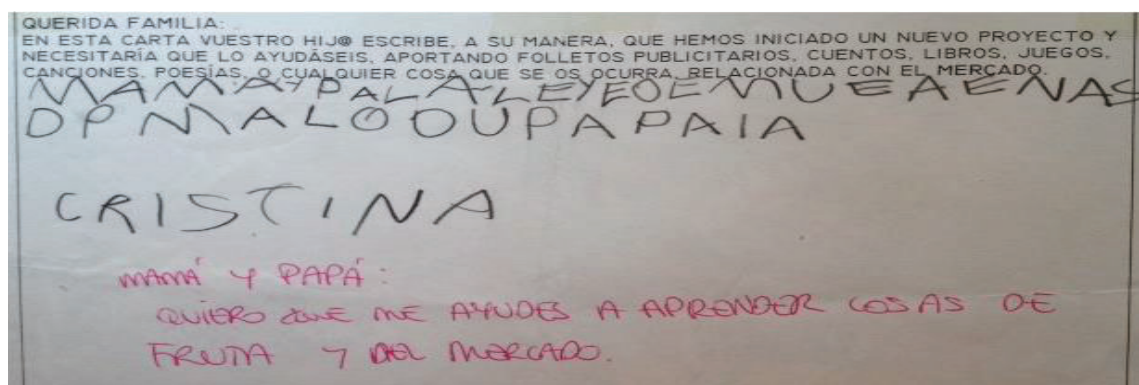 QUERIDA FAMILIA:
EN ESTA CARTA VUESTRO HIJ@ ESCRIBE, A SU MANERA, QUE HEMOS INICIADO UN NUEVO PROYECTO Y
NECESITARÍA QUE LO AYUDÁSEIS, APORTANDO FOLLETOS PUBLICITARIOS, CUENTOS, LIBROS, JUEGOS,
CANCIONES, POESÍAS, O CUALQUIER COSA QUE SE OS OCURRA, RELACIONADA CON EL MERCADO.
MAMAYPALALEYEOEMUEAENAS
OPMALOOUPAPAIA
CRISTINA
MAMÁ Y PAPÁ:
QUIERO QUE ME AYUDES A APRENDER COSAS DE
FRUTA Y DEL MERCADO.